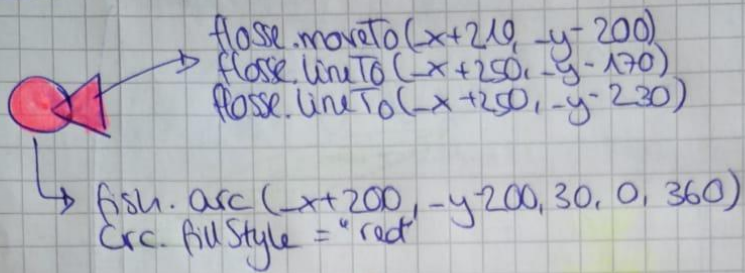 flosse.moveTo(-x+210, -y-200)
flosse.lineTo(-x+250, -y-170)
flosse.lineTo(-x+250, -y-230)
fish.arc(-x+200, -y-200, 30, 0, 360)
Crc.fillStyle = "red"